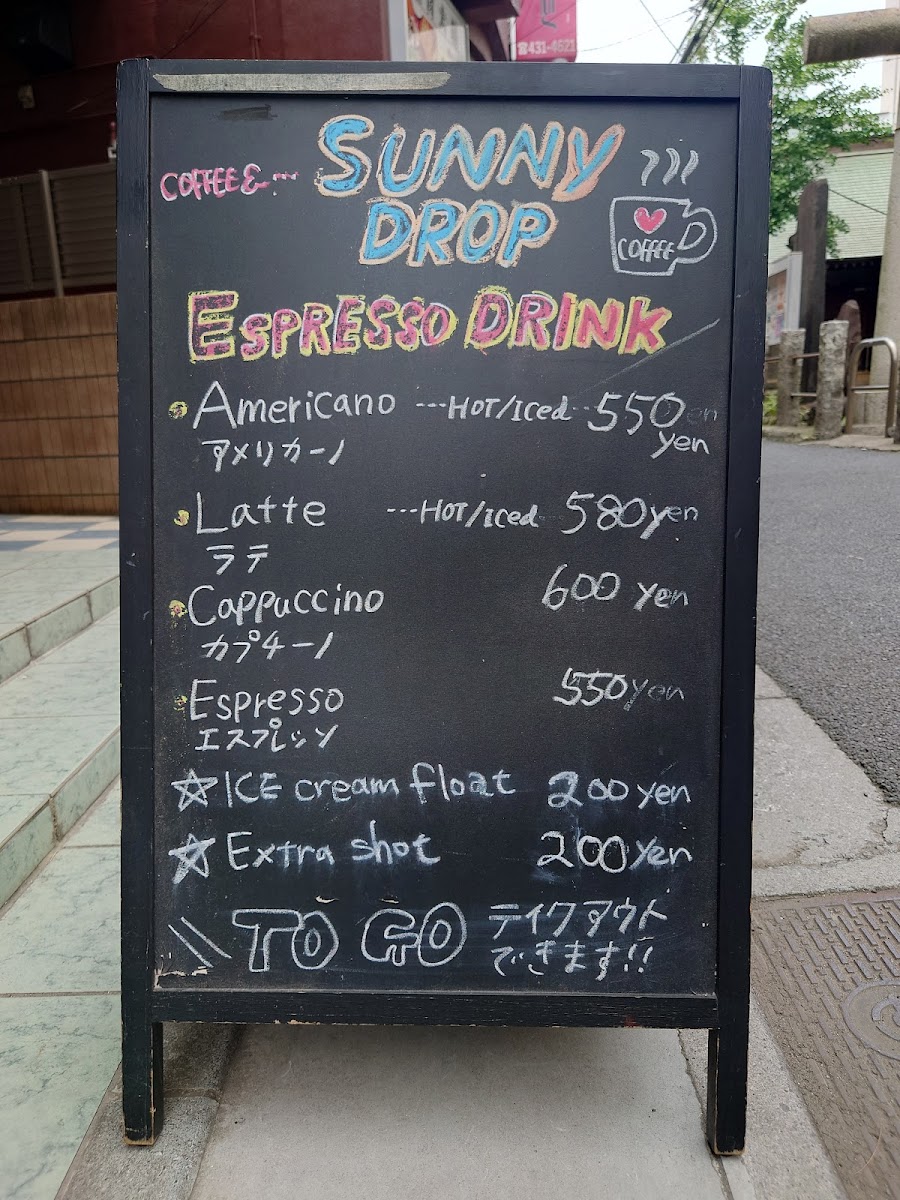 ☎431-4621
COFFEE &… SUNNY
DROP
COFFEE
ESPRESSO DRINK
Americano ---HOT/Iced 550
yen
アメリカーノ
Latte ---HOT/Iced 580yen
ラテ
Cappuccino 600 yen
カプチーノ
Espresso 550yen
エスプレッソ
☆ICE cream float 200yen
☆Extra shot 200yen
\\ TO GO テイクアウト
できます!!